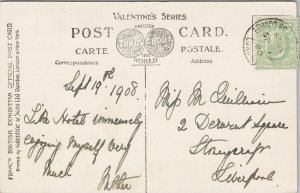 VALENTINE'S SERIES
FAMOUS
POST CARD.
CARTE POSTALE.
THE
WORLD
Correspondence
Address
Sept 19th 1908
Miss M
Like Hotel immensely
2 Derwent Square
enjoying myself very
Stoneycroft
much
Liverpool
FRANCO BRITISH EXHIBITION OFFICIAL POST CARD.
Printed by VALENTINE & SONS LTD Dundee, London & New York